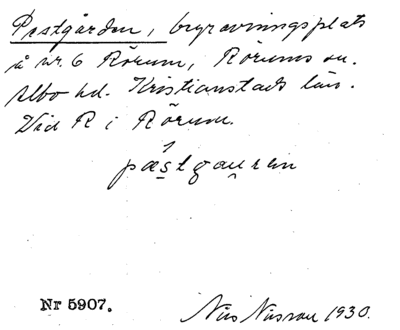 Pestgården, begravningsplats
å nr. 6 Rörum, Rörums sn.
Albo hd. Kristianstads län.
Vid R i Rörum.
pæstgauren
Nr 5907.
Nils Nilsson 1930.